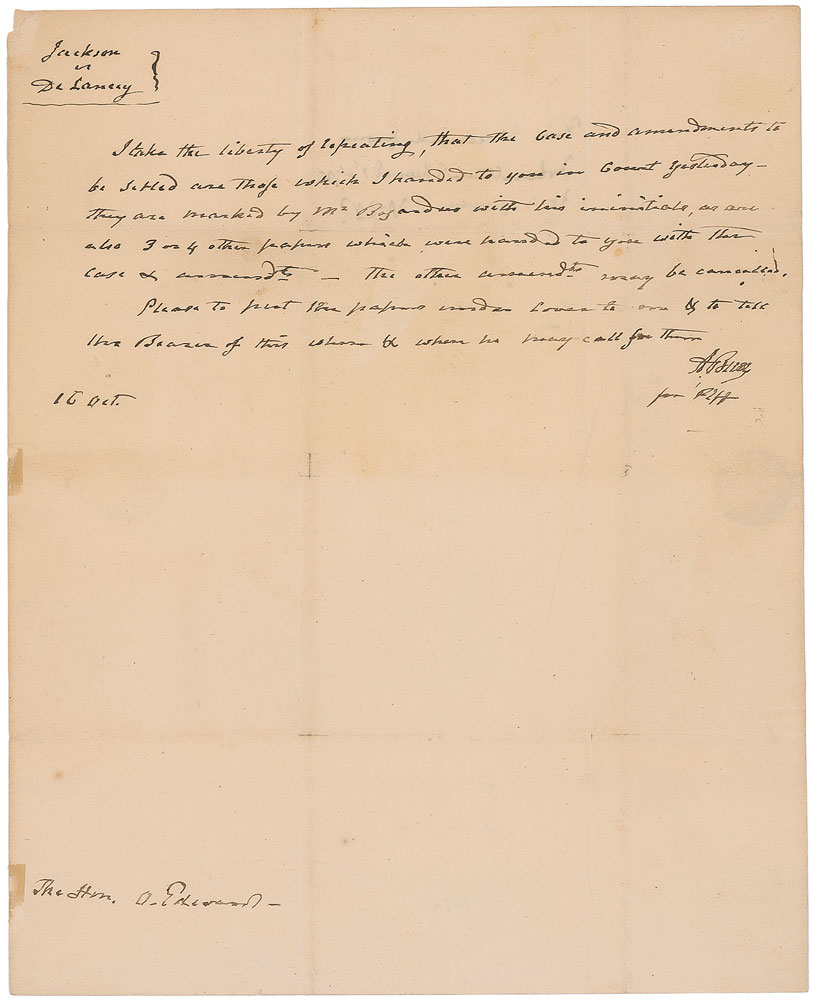 Jackson
vs
De Lancey
I take the liberty of repeating, that the Case and amendments to
be setled are those which I handed to you in Court Yesterday –
they are marked by Mr Bogardus with his ininitials, as are
also 3 or 4 other papers which were handed to you with the
Case & amendts – the other amendts may be cancelled.
Please to put the papers under Cover to me & to tell
the Bearer of this when & where he may call for them
A. Burr
for Plff
16 Oct.
The Hon. O. Edwards –